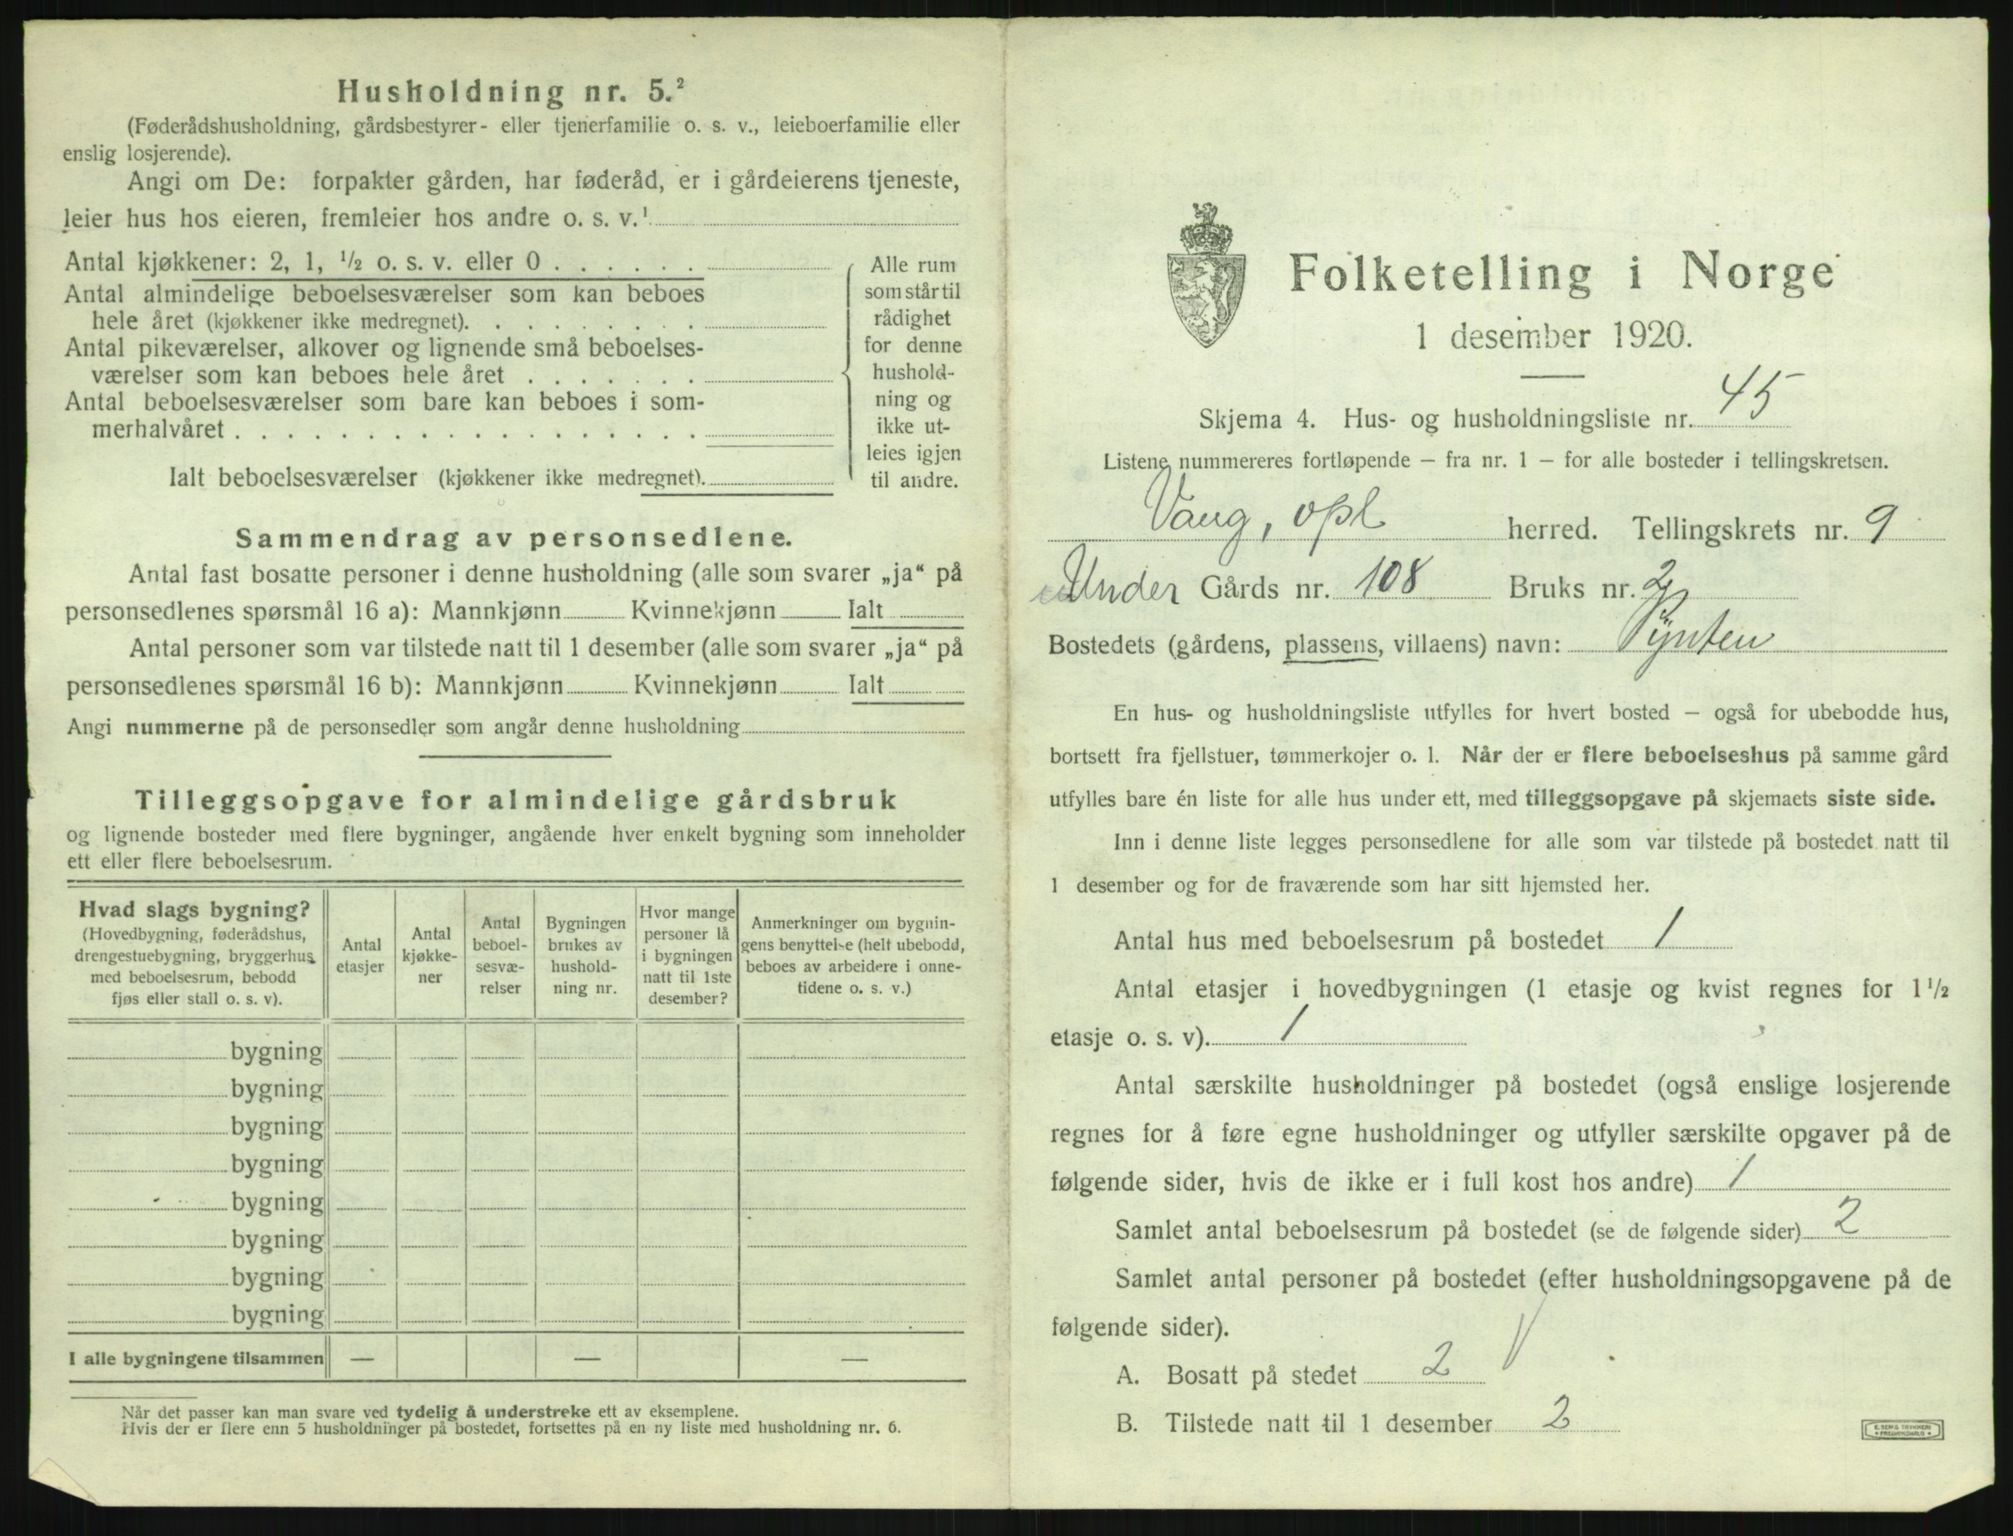 Husholdning nr. 5.²
(Føderådshusholdning, gårdsbestyrer- eller tjenerfamilie o. s. v., leieboerfamilie eller
enslig losjerende).
Angi om De: forpakter gården, har føderåd, er i gårdeierens tjeneste,
leier hus hos eieren, fremleier hos andre o. s. v.¹
Antal kjøkkener: 2, 1, ½ o. s. v. eller 0 . . . . . .
Antal almindelige beboelsesværelser som kan beboes
hele året (kjøkkener ikke medregnet). . . . . . . . .
Antal pikeværelser, alkover og lignende små beboelses-
værelser som kan beboes hele året . . . . . . .
Antal beboelsesværelser som bare kan beboes i som-
merhalvåret . . . . . . . . . . . . . . . . . .
Ialt beboelsesværelser (kjøkkener ikke medregnet).
Alle rum
som står til
rådighet
for denne
hushold-
ning og
ikke ut-
leies igjen
til andre.
Sammendrag av personsedlene.
Antal fast bosatte personer i denne husholdning (alle som svarer „ja“ på
personsedlenes spørsmål 16 a): Mannkjønn Kvinnekjønn Ialt
Antal personer som var tilstede natt til 1 desember (alle som svarer „ja“ på
personsedlenes spørsmål 16 b): Mannkjønn Kvinnekjønn Ialt
Angi nummerne på de personsedler som angår denne husholdning
Tilleggsopgave for almindelige gårdsbruk
og lignende bosteder med flere bygninger, angående hver enkelt bygning som inneholder
ett eller flere beboelsesrum.
Hvad slags bygning?
(Hovedbygning, føderådshus,
drengestuebygning, bryggerhus
med beboelsesrum, bebodd
fjøs eller stall o. s. v).
Antal
etasjer
Antal
kjøkke-
ner
Antal
beboel-
sesvæ-
relser
Bygningen
brukes av
hushold-
ning nr.
Hvor mange
personer lå
i bygningen
natt til 1ste
desember?
Anmerkninger om bygnin-
gens benyttelse (helt ubebodd,
beboes av arbeidere i onne-
tidene o. s. v.)
bygning
bygning
bygning
bygning
bygning
bygning
bygning
bygning
I alle bygningene tilsammen — — —
Når det passer kan man svare ved tydelig å understreke ett av eksemplene.
Hvis der er flere enn 5 husholdninger på bostedet, fortsettes på en ny liste med husholdning nr. 6.
Folketelling i Norge
1 desember 1920.
Skjema 4. Hus- og husholdningsliste nr. 45
Listene nummereres fortløpende — fra nr. 1 — for alle bosteder i tellingskretsen.
Vang, opl herred. Tellingskrets nr. 9
Under Gårds nr. 108 Bruks nr. 2
Bostedets (gårdens, plassens, villaens) navn: Pynten
En hus- og husholdningsliste utfylles for hvert bosted — også for ubebodde hus,
bortsett fra fjellstuer, tømmerkojer o. l. Når der er flere beboelseshus på samme gård
utfylles bare én liste for alle hus under ett, med tilleggsopgave på skjemaets siste side.
Inn i denne liste legges personsedlene for alle som var tilstede på bostedet natt til
1 desember og for de fraværende som har sitt hjemsted her.
Antal hus med beboelsesrum på bostedet 1
Antal etasjer i hovedbygningen (1 etasje og kvist regnes for 1 ½
etasje o. s. v). 1
Antal særskilte husholdninger på bostedet (også enslige losjerende
regnes for å føre egne husholdninger og utfyller særskilte opgaver på de
følgende sider, hvis de ikke er i full kost hos andre) 1
Samlet antal beboelsesrum på bostedet (se de følgende sider) 2
Samlet antal personer på bostedet (efter husholdningsopgavene på de
følgende sider).
A. Bosatt på stedet 2
B. Tilstede natt til 1 desember 2